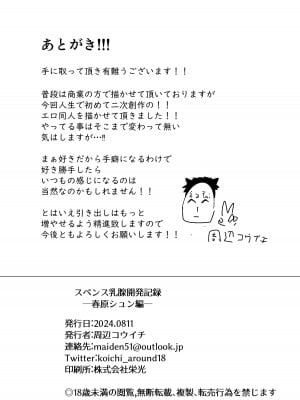 あとがき!!!
手に取って頂き有難うございます！！
普段は商業の方で描かせて頂いておりますが
今回人生で初めて二次創作の！！
エロ同人を描かせて頂きました！！
やってる事はそこまで変わって無い
気はしますが…!!
まぁ好きだから手癖になるわけで
好き勝手したら
いつもの感じになるのは
当然なのかもしれません！！
とはいえ引き出しはもっと
増やせるよう精進致しますので
今後ともよろしくお願いします！！
Me
周辺コウイチ
スペンス乳腺開発記録
―春原シュン編―
発行日:2024.0811
発行者:周辺コウイチ
連絡先:maiden51@outlook.jp
Twitter:koichi_around18
印刷所:株式会社栄光
◎18歳未満の閲覧,無断転載、複製、転売行為を禁じます